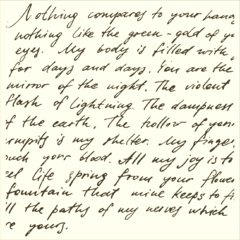 Nothing compares to your hand
nothing like the green-gold of yo
eyes. My body is filled with
for days and days. You are the
mirror of the night. The violent
flash of lightning. The dampness
f the earth. The hollow of your
rmpits is my shelter. My finger
uch your blood. All my joy is to
el life spring from your flower
fountain that mine keeps to fi
ll the paths of my nerves which
re yours.